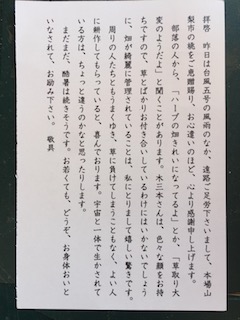 拝啓　昨日は台風五号の風雨のなか、遠路ご足労下さいまして、本場山
梨市の桃をご恵贈賜り、お心遣いのほど、心より感謝申し上げます。
部落の人から、「ハーブの畑きれいになってるよ」とか、「草取り大
変のようだよ」と聞くことがあります。木三本さんは、色々な顔をお持
ちですので、草とばかりお付き合いしているわけにはいかないでしょう
に、畑が綺麗に管理されていることは、私にとりまして嬉しい驚きです。
周りの人たちともうまくゆき、草に負けてしまうこともなく、よい人
に耕作してもらっていると、喜んでおります。宇宙と一体で生かされて
いる方は、ちょっと違うのかなと思ったりします。
まだまだ、酷暑は続きそうです。お若くても、どうぞ、お身体おいと
いなされて、お励み下さい。　敬具